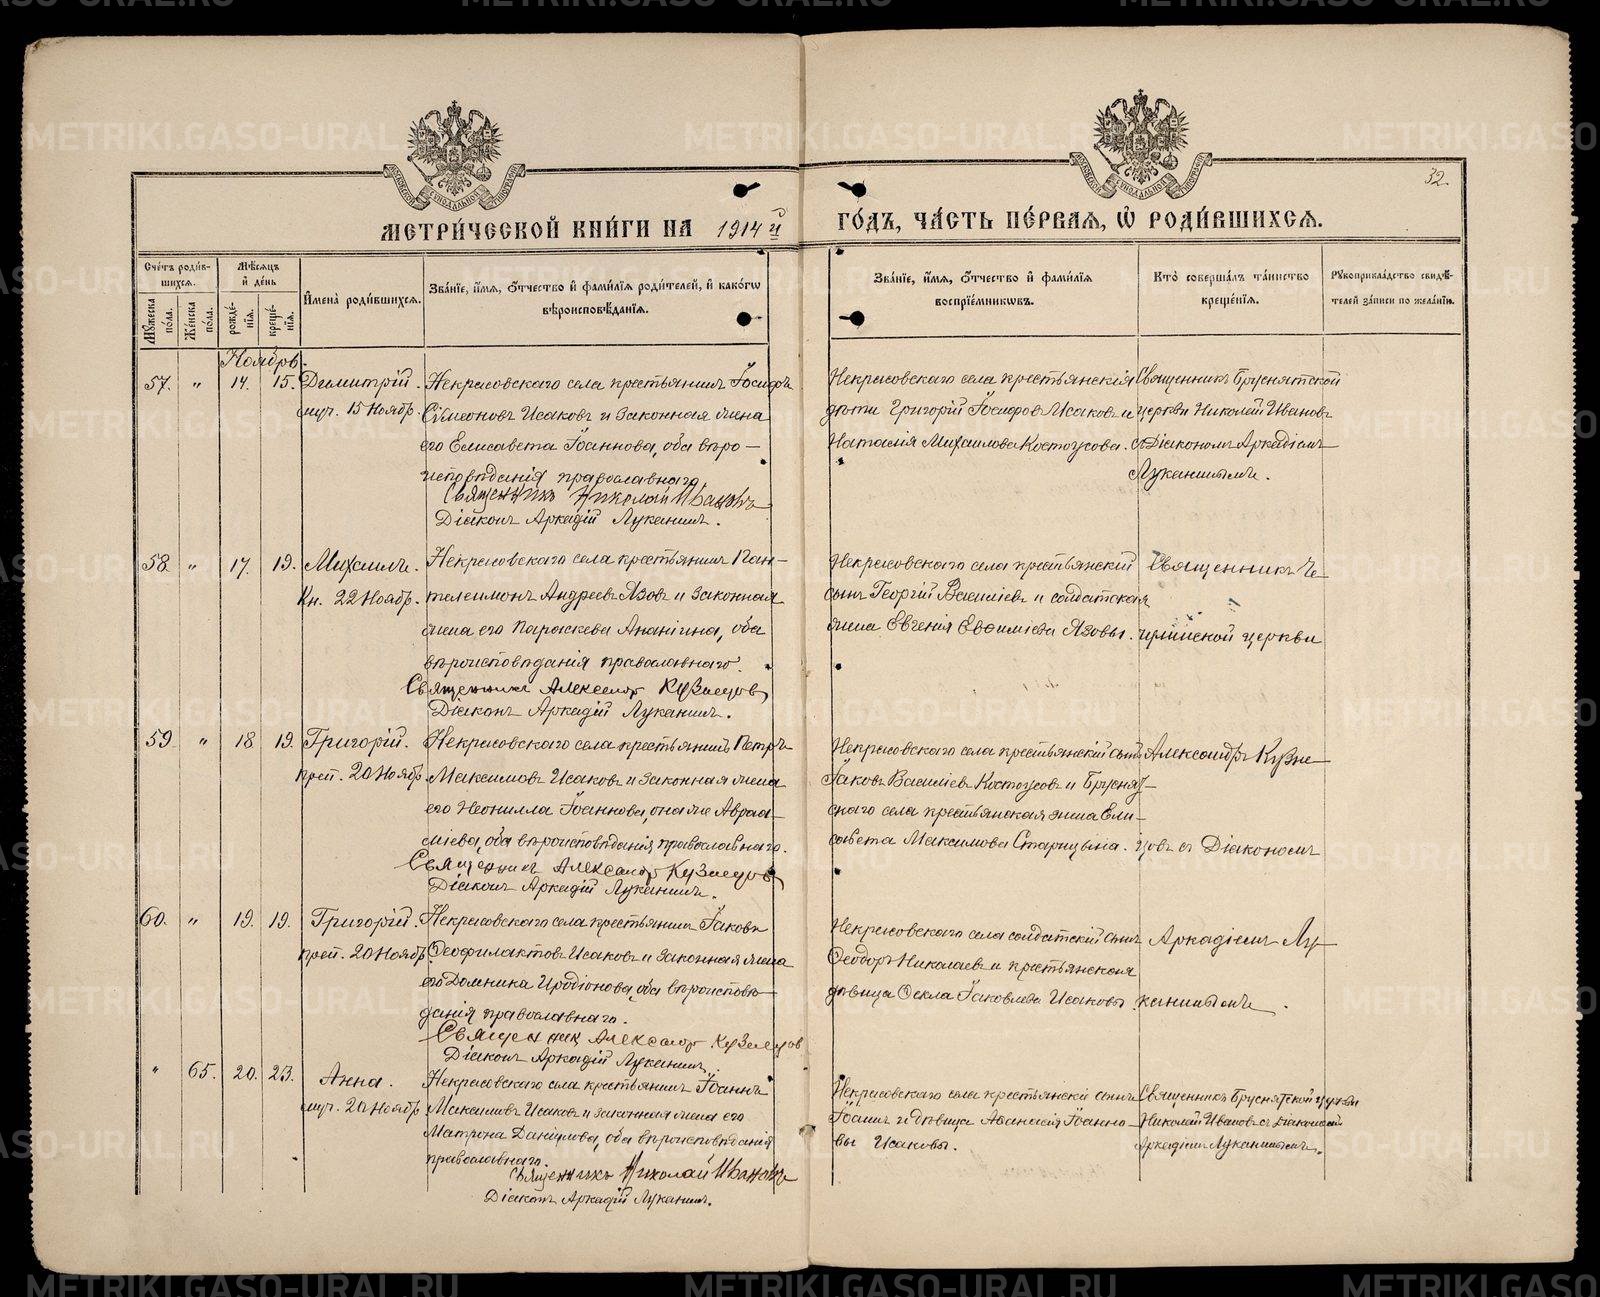 32.
МЕТРИ́ЧЕСКОЙ КНИ́ГИ НА 1914 й ГО́ДЪ, ЧА́СТЬ ПЕ́РВАѦ, Ѡ҆ РОДИ́ВШИХСѦ.
Сче́тъ роди́в-
шихсѧ.
Мѹ́жеска по́ла.
Же́нска по́ла.
Мѣ́сѧцъ и҆ де́нь
рожде́-нїѧ.
креще́-нїѧ.
И҆мена̀ роди́вшихсѧ.
Зва́нїе, и҆́мѧ, ѻ҆́тчество и҆ фами́лїѧ роди́телей, и҆ како́гѡ
вѣроисповѣ́данїѧ.
Зва́нїе, и҆́мѧ, ѻ҆́тчество и҆ фами́лїѧ
воспрїе́мникѡвъ.
Кто̀ соверша́лъ та́инство
креще́нїѧ.
Рѹкоприкла́дство свидѣ́-
телей за́писи по жела́нїю.
Ноябрь.
57. " 14. 15. Димитрій.
муч. 15 Ноябр.
Некрасовскаго села крестьянинъ Іосифъ
Симеоновъ Исаковъ и законная жена
его Елисавета Іоаннова, оба вѣро-
исповѣданія православнаго.
Священникъ Николай Ивановъ
Діаконъ Аркадій Луканинъ.
Некрасовскаго села крестьянскія
дѣти Григорій Іосифовъ Исаковъ и
Наталія Михаилова Костоусова.
Священникъ Бруснятской
церкви Николай Ивановъ
съ Діакономъ Аркадіемъ
Луканинымъ.
58. " 17. 19. Михаилъ.
Кн. 22 Ноябр.
Некрасовскаго села крестьянинъ Пан-
телеимонъ Андреевъ Язовъ и законная
жена его Параскева Ананіина, оба
вѣроисповѣданія православнаго.
Священникъ Александр Кузнецов
Діаконъ Аркадій Луканинъ.
Некрасовскаго села крестьянскій
сынъ Георгій Василіевъ и солдатская
жена Евгенія Евѳиміева Язовы.
Священникъ Че-
церкви
59. " 18 19. Григорій.
преп. 20 Ноябр.
Некрасовскаго села крестьянинъ Петръ
Максимовъ Исаковъ и законная жена
его Неонилла Іоаннова, она же Авраа-
міева, оба вѣроисповѣданія православнаго.
Священникъ Александр Кузнецов
Діаконъ Аркадій Луканинъ.
Некрасовскаго села крестьянскій сынъ
Іаковъ Василіевъ Костоусовъ и Бруснят-
скаго села крестьянская жена Ели-
савета Максимова Старицына.
Александръ Кузне-
цовъ съ Діакономъ
60. " 19. 19. Григорій.
преп. 20 Ноябр.
Некрасовскаго села крестьянинъ Іаковъ
Ѳеофилактовъ Исаковъ и законная жена
его Домника Иродіонова, оба вѣроисповѣ-
данія православнаго.
Священник Александр Кузнецов
Діаконъ Аркадій Луканинъ.
Некрасовскаго села солдатскій сынъ
Ѳеодоръ Николаевъ и крестьянская
дѣвица Ѳекла Іаковлева Исаковы.
Аркадіемъ Лу-
канинымъ.
" 65. 20. 23. Анна.
муч. 20 Ноябр.
Некрасовскаго села крестьянинъ Іоаннъ
Максимовъ Исаковъ и законная жена его
Матрона Даніилова, оба вѣроисповѣданія
православнаго.
Священникъ Николай Ивановъ
Діаконъ Аркадій Луканинъ.
Некрасовскаго села крестьянскій сынъ
Іоаннъ и дѣвица Аѳанасія Іоанно-
вы Исаковы.
Священникъ Бруснятской церкви
Николай Ивановъ съ Діакономъ
Аркадіемъ Луканинымъ.
METRIKI.GASO-URAL.RU